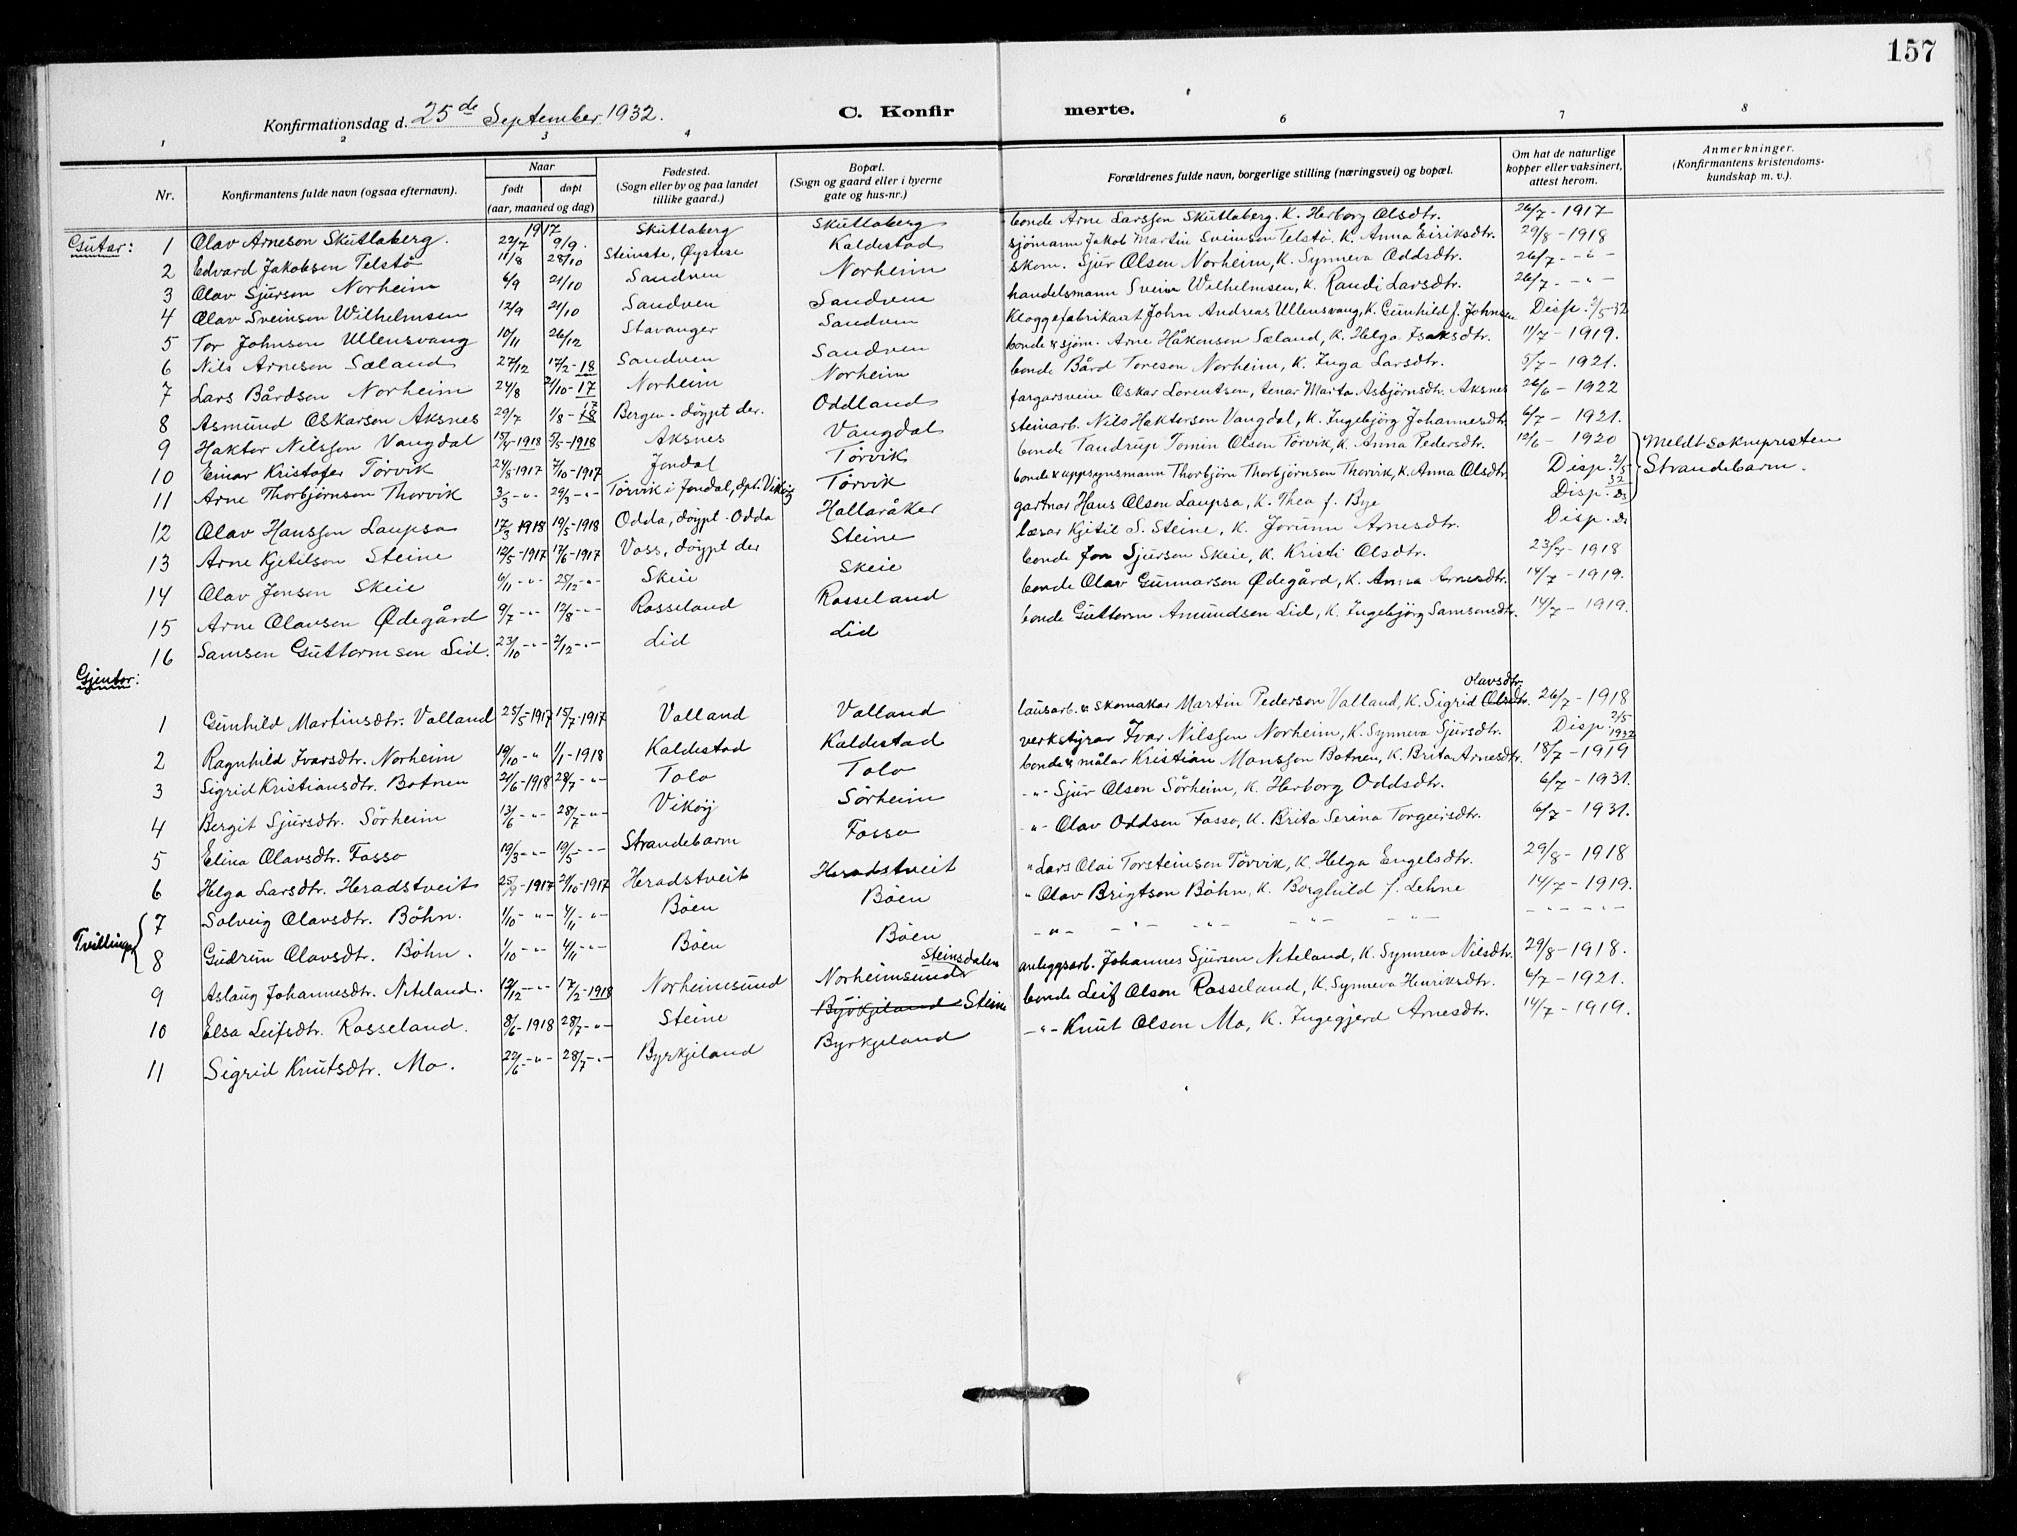 157
Konfirmationsdag d. 25de September 1932. C. Konfirmerte.
1 2 3 4 6 7 8
Nr. Konfirmantens fulde navn (ogsaa efternavn). Naar født døpt (aar, maaned og dag) Fødested. (Sogn eller by og paa landet tillike gaard.) Bopæl. (Sogn og gaard eller i byerne gate og hus-nr.) Forældrenes fulde navn, borgerlige stilling (næringsvei) og bopæl. Om hat de naturlige kopper eller vaksinert, attest herom. Anmerkninger. (Konfirmantens kristendoms-kundskap m. v.).
Gutar: 1917
1 Olav Arneson Skutlaberg. 22/7 9/9. Skutlaberg Skutlaberg bonde Arne Larsson Skutlaberg. K. Herborg Olsdtr. 26/7 - 1917
2 Edvard Jakobsen Telstø 11/8 28/10 Steinstø, Øystese Kaldestad sjömann Jakob Martin Sveinsen Telstø, K. Anna Eiriksdtr. 29/8 - 1918
3 Olav Sjurson Norheim 6/9 21/10 Sandven Norheim skom. Sjur Olsen Norheim, K. Synneva Oddsdtr. 26/7 - " -
4 Olav Sveinson Wilhelmsen 12/9 21/10 Sandven Sandven handelsmann Svein Wilhelmsen, K. Randi Larsdtr. 26/7 - " -
5 Tor Johnson Ullensvang 10/11 26/12 Stavanger Sandven Kloggefabrikant John Andreas Ullensvang, K. Gunhild f. Johnsen Disp. 2/5-32
6 Nils Arneson Sæland 27/12 17/2-18 Sandven Sandven bonde & sjøm. Arne Håkonson Sæland, K. Helga Isaksdtr. 11/7 - 1919.
7 Lars Bårdson Norheim 24/8 21/10-17 Norheim Norheim bonde Bård Toreson Norheim, K. Inga Larsdtr. 5/7 - 1921.
8 Asmund Oskarson Aksnes 29/7 1/8-18 17 Bergen - döypt der. Oddland fargarsvein Oskar Lorentsen, tenar Marta Asbjørnsdtr. Aksnes 26/6 - 1922
9 Haktor Nilsson Vangdal 15/4-1918 5/5-1918 Aksnes Vangdal steinarb. Nils Haktorson Vangdal, K. Ingebjörg Johannesdtr. 6/7 - 1921.
10 Einar Kristofer Törvik 24/8-1917 7/10-1917 Jondal Törvik bonde Tandrup Tomin Olsen Törvik, K. Anna Pedersdtr. 12/6 - 1920 Meldt sokneprsten
11 Arne Thorbjörnson Thorvik 3/3-"- 29/3-"- Törvik i Jondal, dpt. Vikøy Törvik bonde & uppsynsmann Thorbjörn Thorbjörnson Thorvik, K. Anna Olsdtr. Disp. 2/5 32 Strandebarm.
12 Olav Hansson Laupsa 17/3-1918 19/5-1918 Odda, döypt Odda Hallaråker gartnar Hans Olson Laupsa, K. Thea f. Bye Disp. do
13 Arne Kjetilson Steine 12/5-1917 17/6-1917 Voss, döypt der Steine lærar Kjetil S. Steine, K. Jorunn Arnesdtr. Disp. do
14 Olav Jonson Skeie 6/11-"- 25/12-"- Skeie Skeie bonde Jon Sjurson Skeie, K. Kristi Olsdtr. 23/7 - 1918
15 Arne Olavson Ødegård 9/7-"- 12/8-"- Rosseland Rosseland bonde Olav Gunnarson Ødegård, K. Anna Arnesdtr. 14/7 - 1919.
16 Samson Guttormson Lid. 23/10-"- 2/12-"- Lid Lid bonde Guttorm Amundsen Lid, K. Ingebjörg Samsonsdtr. 14/7 - 1919.
Gjentor:
1 Gunhild Martinsdtr. Valland 25/5-1917 15/7-1917 Valland Valland lausarb. & skomakar Martin Pederson Valland, K. Sigrid Olsdtr. Olavsdtr. 26/7 - 1918
2 Ragnhild Ivarsdtr. Norheim 19/10-" 1/1-1918 Kaldestad Kaldestad verkstyrar Ivar Nilsson Norheim, K. Synneva Sjursdtr. Disp. 2/5 1932
3 Sigrid Kristiansdtr. Botnen 21/6-1918 28/7-"- Tolo Tolo bonde & målar Kristian Monsson Botnen, K. Brita Arnesdtr. 18/7 - 1919
4 Bergit Sjursdtr. Sörheim 13/6-"- 28/7-"- Vikøy Sörheim -"- Sjur Olson Sörheim, K. Herborg Oddsdtr. 6/7 - 1931.
5 Elina Olavsdtr. Fosso 19/3-"- 19/5-"- Strandebarm Fosso -"- Olav Oddson Fosso, K. Brita Serina Torgeirsdtr. 6/7 - 1931.
6 Helga Larsdtr. Heradstveit 25/9-1917 21/10-1917 Heradstveit Heradstveit " Lars Olai Torsteinson Törvik, K. Helga Engelsdtr. 29/8 - 1918
Tvillingar
7 Solveig Olavsdtr. Böhn. 1/10-"- 4/11-"- Böen Böen " Olav Brigtson Böhn, K. Borghild f. Lehne 14/7 - 1919.
8 Gudrun Olavsdtr. Böhn. 1/10-"- 4/11-"- Böen Böen -"- -"- -"- -"- -"- - " - " -
9 Aslaug Johannesdtr. Niteland. 19/12-"- 17/2-1918 Norheimsund Norheimsund Steinsdalen anleggsarb. Johannes Sjurson Niteland, K. Synneva Nilsdtr. 29/8 - 1918.
10 Elsa Leifsdtr. Rosseland. 8/6-1918 28/7-"- Steine Byrkjeland Steine bonde Leif Olson Rosseland, K. Synneva Henriksdtr. 6/7 - 1921.
11 Sigrid Knutsdtr. Mo. 22/6-"- 28/7-"- Byrkjeland Byrkjeland -"- Knut Olson Mo, K. Ingegjerd Arnesdtr. 14/7 - 1919.